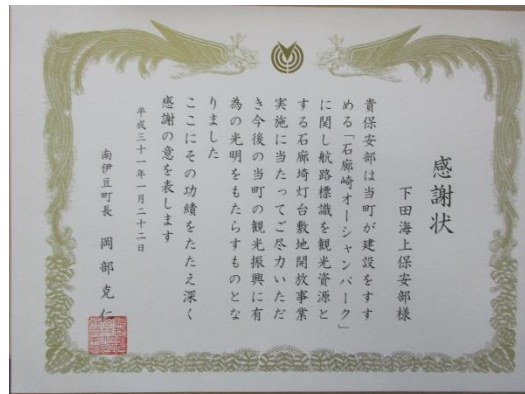 感謝状
下田海上保安部様
貴保安部は当町が建設をすす
める「石廊崎オーシャンパーク」
に関し航路標識を観光資源と
する石廊埼灯台敷地開放事業
実施に当たってご尽力いただ
き今後の当町の観光振興に有
為の光明をもたらすものとな
りました
ここにその功績をたたえ深く
感謝の意を表します
平成三十一年一月二十二日
南伊豆町長 岡部克仁